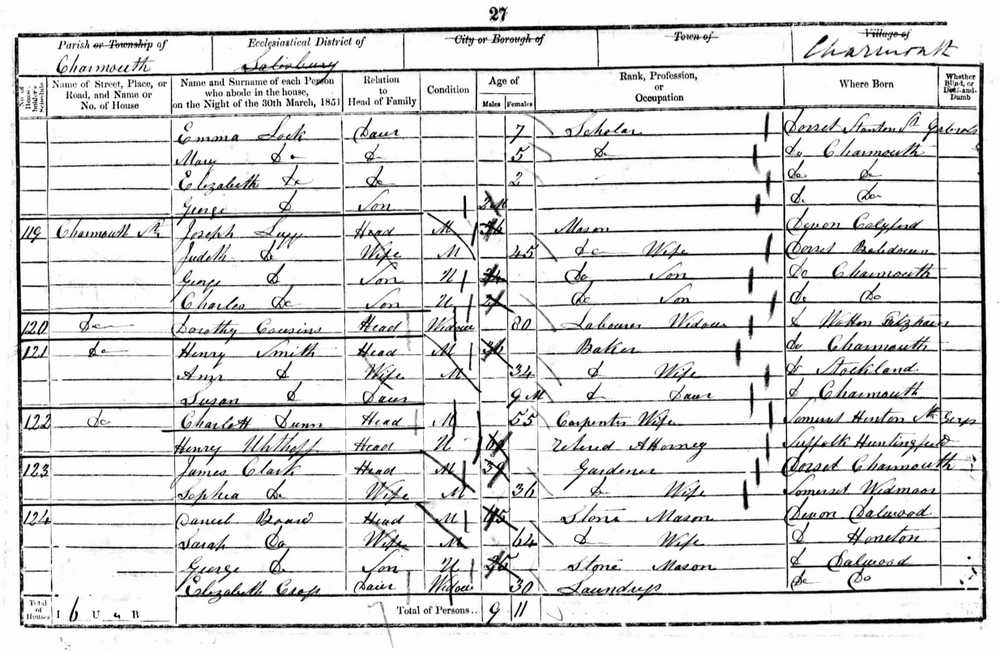 27
Parish or Township of Charmouth | Ecclesiastical District of Salisbury | City or Borough of | Town of | Village of Charmouth
No. of Householder's Schedule | Name of Street, Place, or Road, and Name or No. of House | Name and Surname of each Person who abode in the house, on the Night of the 30th March, 1851 | Relation to Head of Family | Condition | Age of Males Females | Rank, Profession, or Occupation | Where Born | Whether Blind, or Deaf-and-Dumb
Emma Lock Daur 7 Scholar Dorset Stanton St
Mary Do D 5 D Do Charmouth
Elizabeth Do Do 2 Do Do
George D Son 2 M Do Do
119 Charmouth St Joseph Head M Mason Devon Colyford
Judith D Wife M 45 Do Wife Dorset
George D Son U 24 Do Son Do Charmouth
Charles Do Son U Do Son Do Do
120 Do Dorothy Cousins Head Widow 80 Labourer Widow D Wotton
121 Do Henry Smith Head M 36 Baker Do Charmouth
Ann D Wife M 34 D Wife D Stockland
Susan D Daur 9 M D Daur D Charmouth
122 Do Charlott Dunn Head M 55 Carpenter Wife Somerset Hinton St
Henry Uhthoff Head U Retired Attorney Suffolk Huntingfield
123 James Clark Head M 39 Gardener Dorset Charmouth
Sophia Do Wife M 36 D Wife Somerset
124 Daniel Head M Stone Mason Devon Dalwood
Sarah Do Wife M 64 D Wife D Honiton
George D Son U Stone Mason D Dalwood
Elizabeth Daur Widow 30 Laundress Do Do
Total of Houses I 6 U B Total of Persons.. 9 11